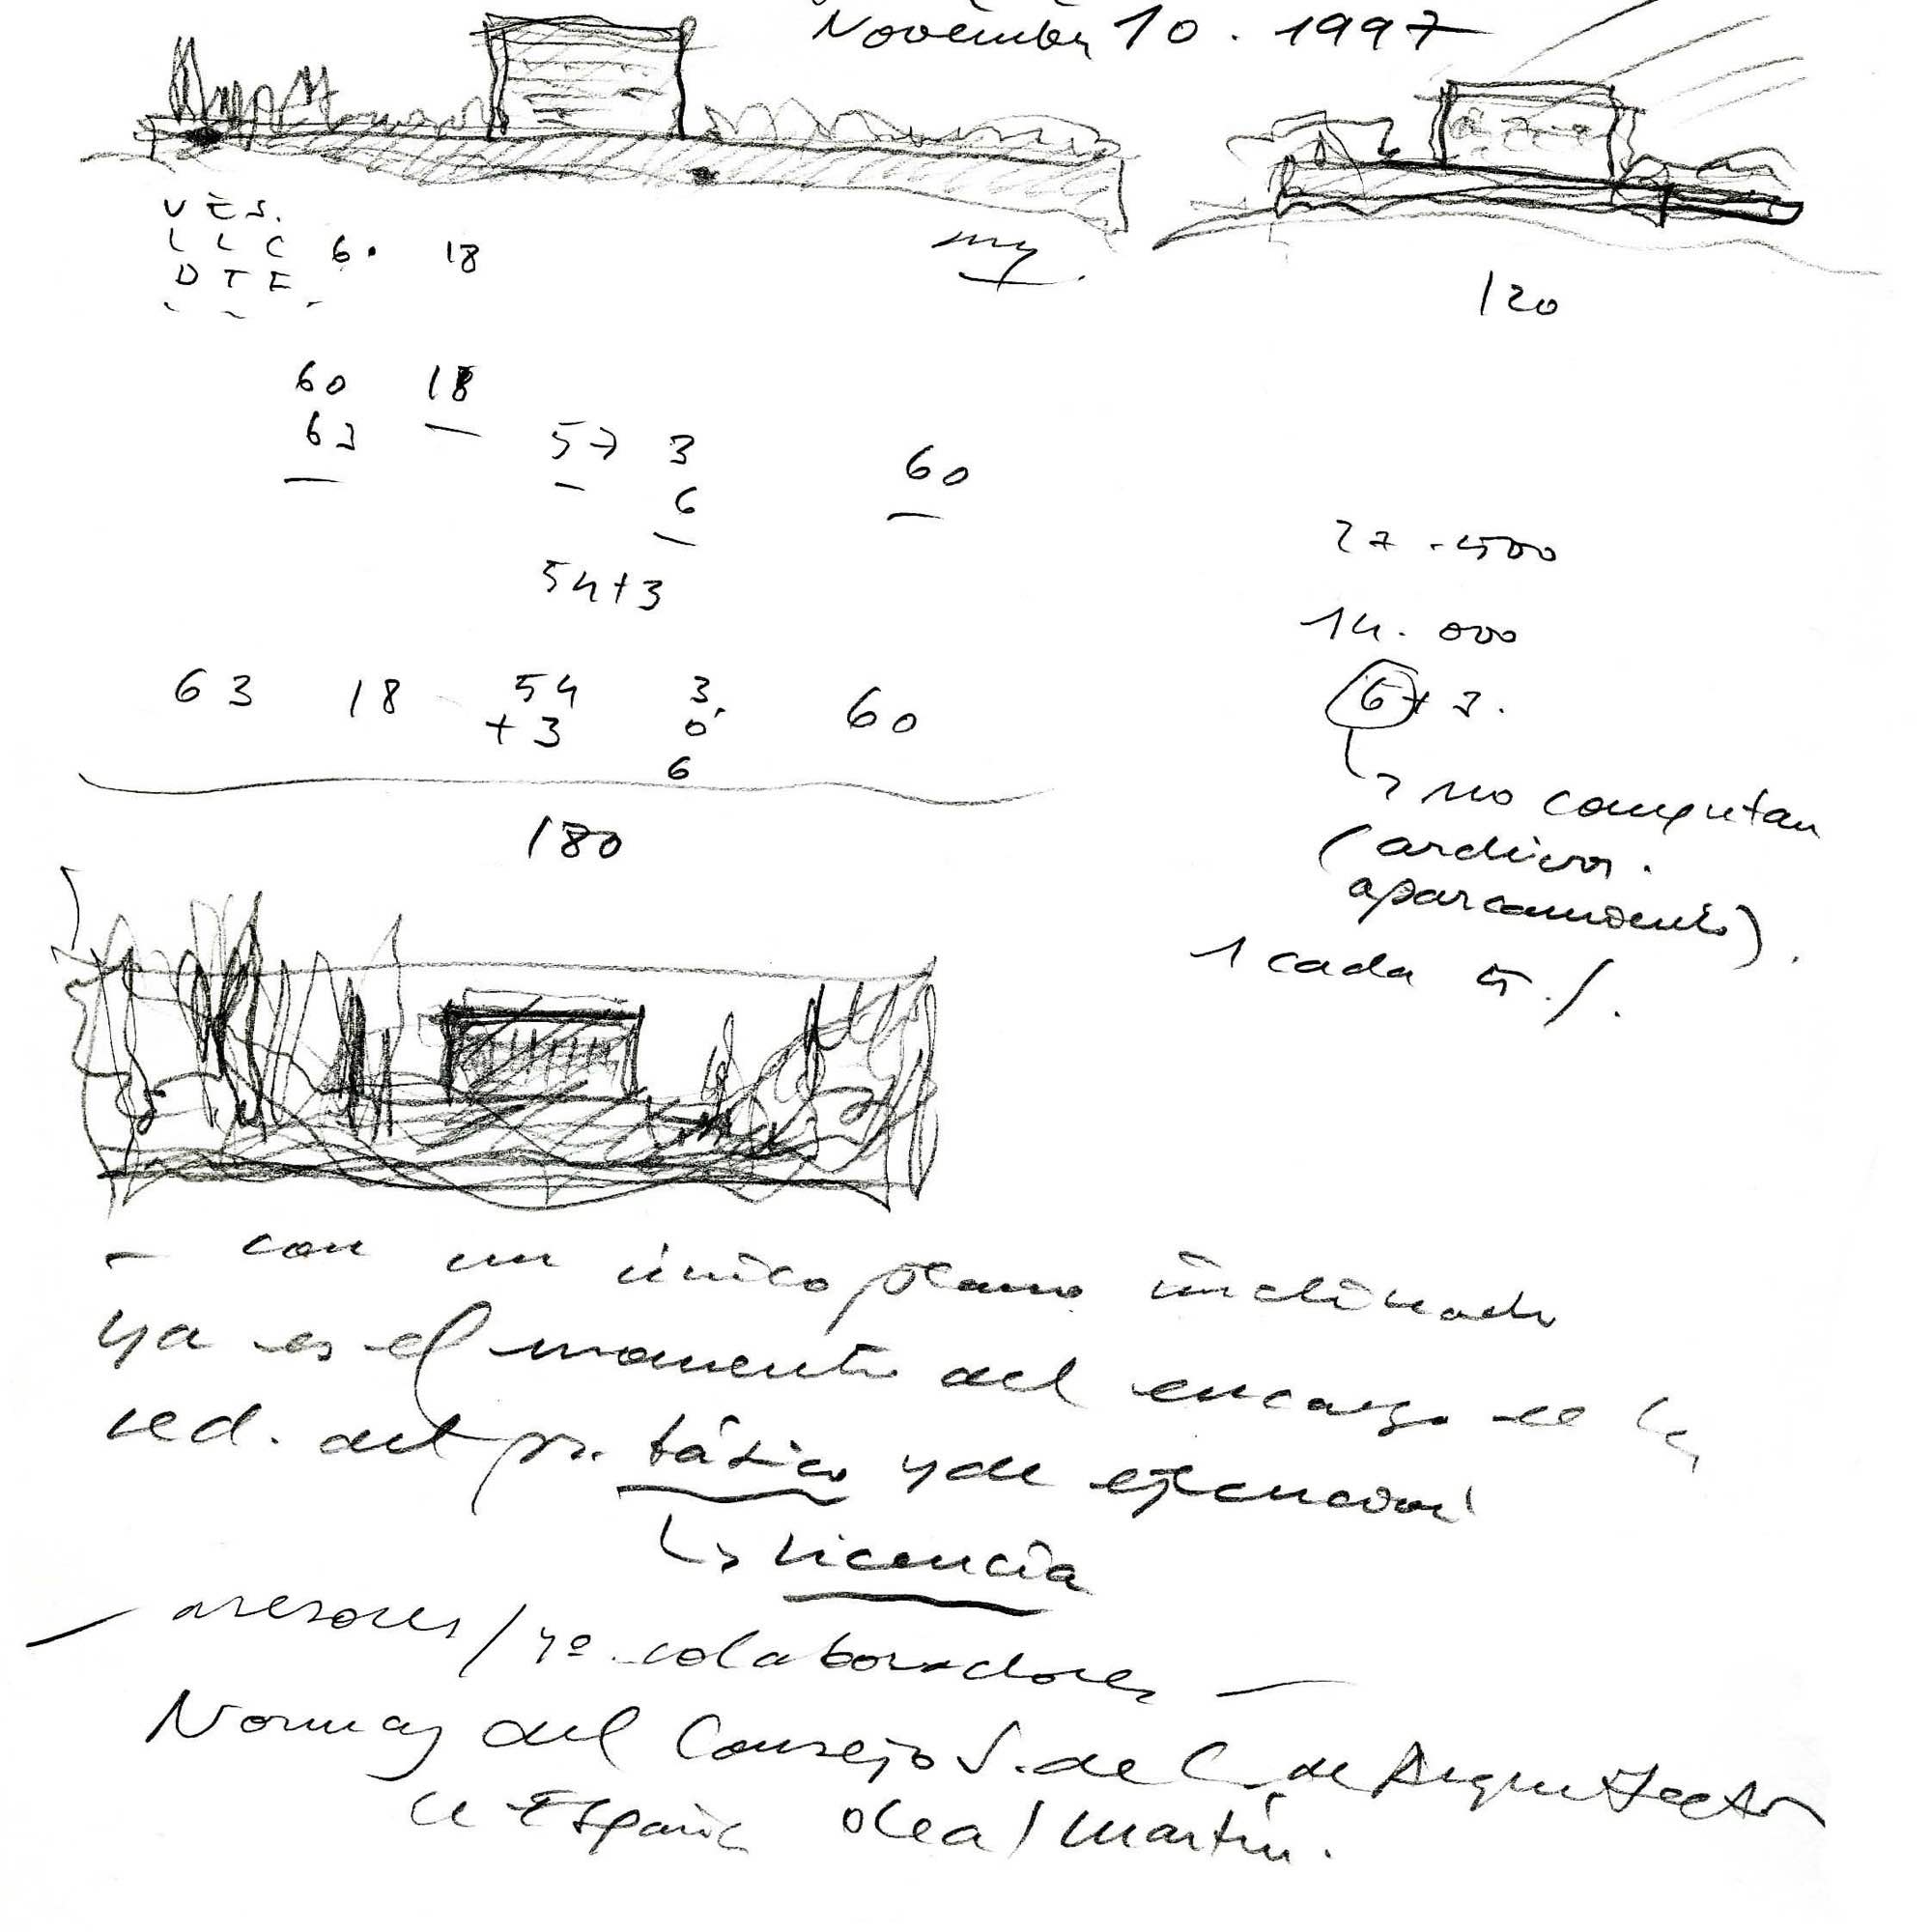 November 10. 1997
V E S.
L L C 6. 18
D T E
120
60 18
63
57 3
6
60
54+3
27.500
14.000
6+3.
63 18 54 3. 60
+3 0
6
180
no computan
(archivos.
aparcamiento).
1 cada 5./.
- con un único plano inclinado
ya es el momento del encargo de la
red. del pr. básico y de ejecución
↳ Licencia
- asesores / colaboradores -
Normas del Consejo S. de C. de Arquitectos
de España Olea / Martín.